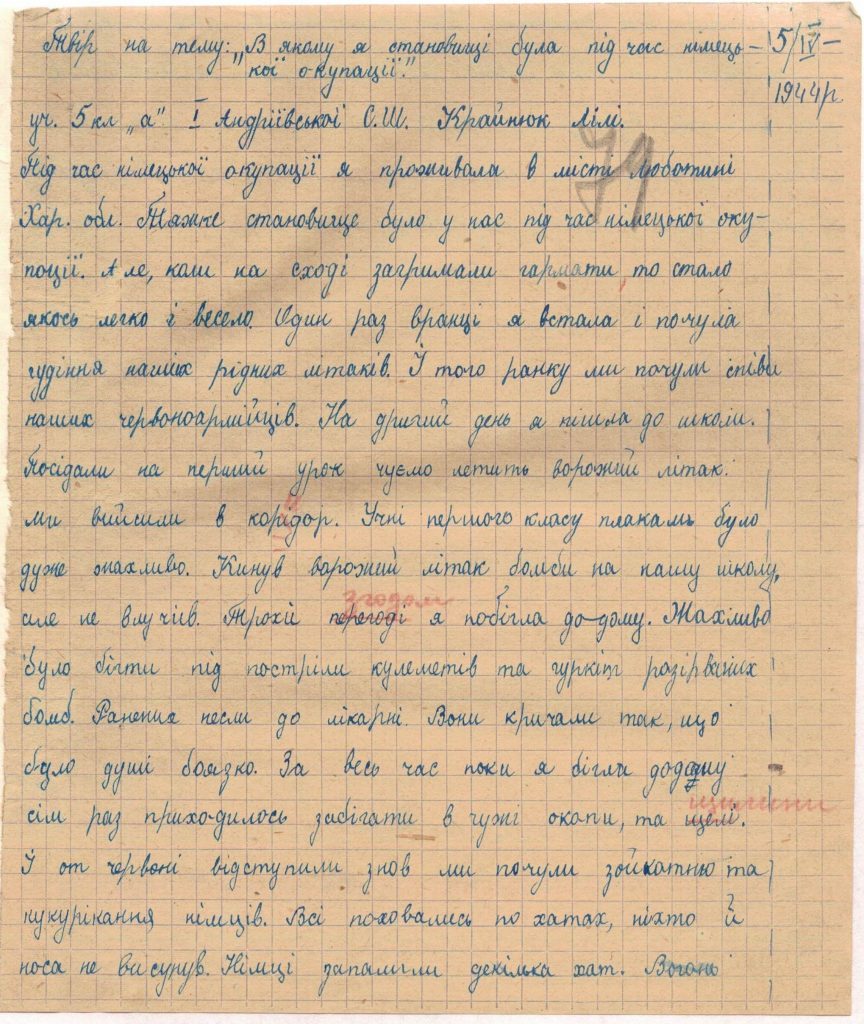 Твір на тему: „В якому я становищі була під час німець- 5/IV-
кої окупації."
1944р
уч. 5 кл „а" I Андріївської С.Ш. Крайнюк Лілі.
Під час німецької окупації я проживала в місті Люботині
Хар. обл. Тяжке становище було у нас під час німецької оку-
пації. Але, коли на сході загримали гармати то стало
якось легко і весело. Один раз вранці я встала і почула
гудіння наших рідних літаків. І того ранку ми почули співи
наших червоноармійців. На другий день я пішла до школи.
Посідали на перший урок чуємо летить ворожий літак.
ми вийшли в корідор. Учні першого класу плакамь було
дуже жахливо. Кинув ворожий літак бомби на нашу школу,
але не влучив. згодом
Трохи перегоді я побігла до-дому. Жахливо
було бігти під постріли кулеметів та гуркіт розірваних
бомб. Ранених несли до лікарні. Вони кричали так, що
було душі боязко. За весь час поки я бігла додому
щилини
сім раз приходилось забігати в чужі окопи, та щелі.
І от червоні відступили знов ми почули зойкатню та
кукурікання німців. Всі поховались по хатах, ніхто й
носа не висунув. Німці запалили декілька хат. Вогонь